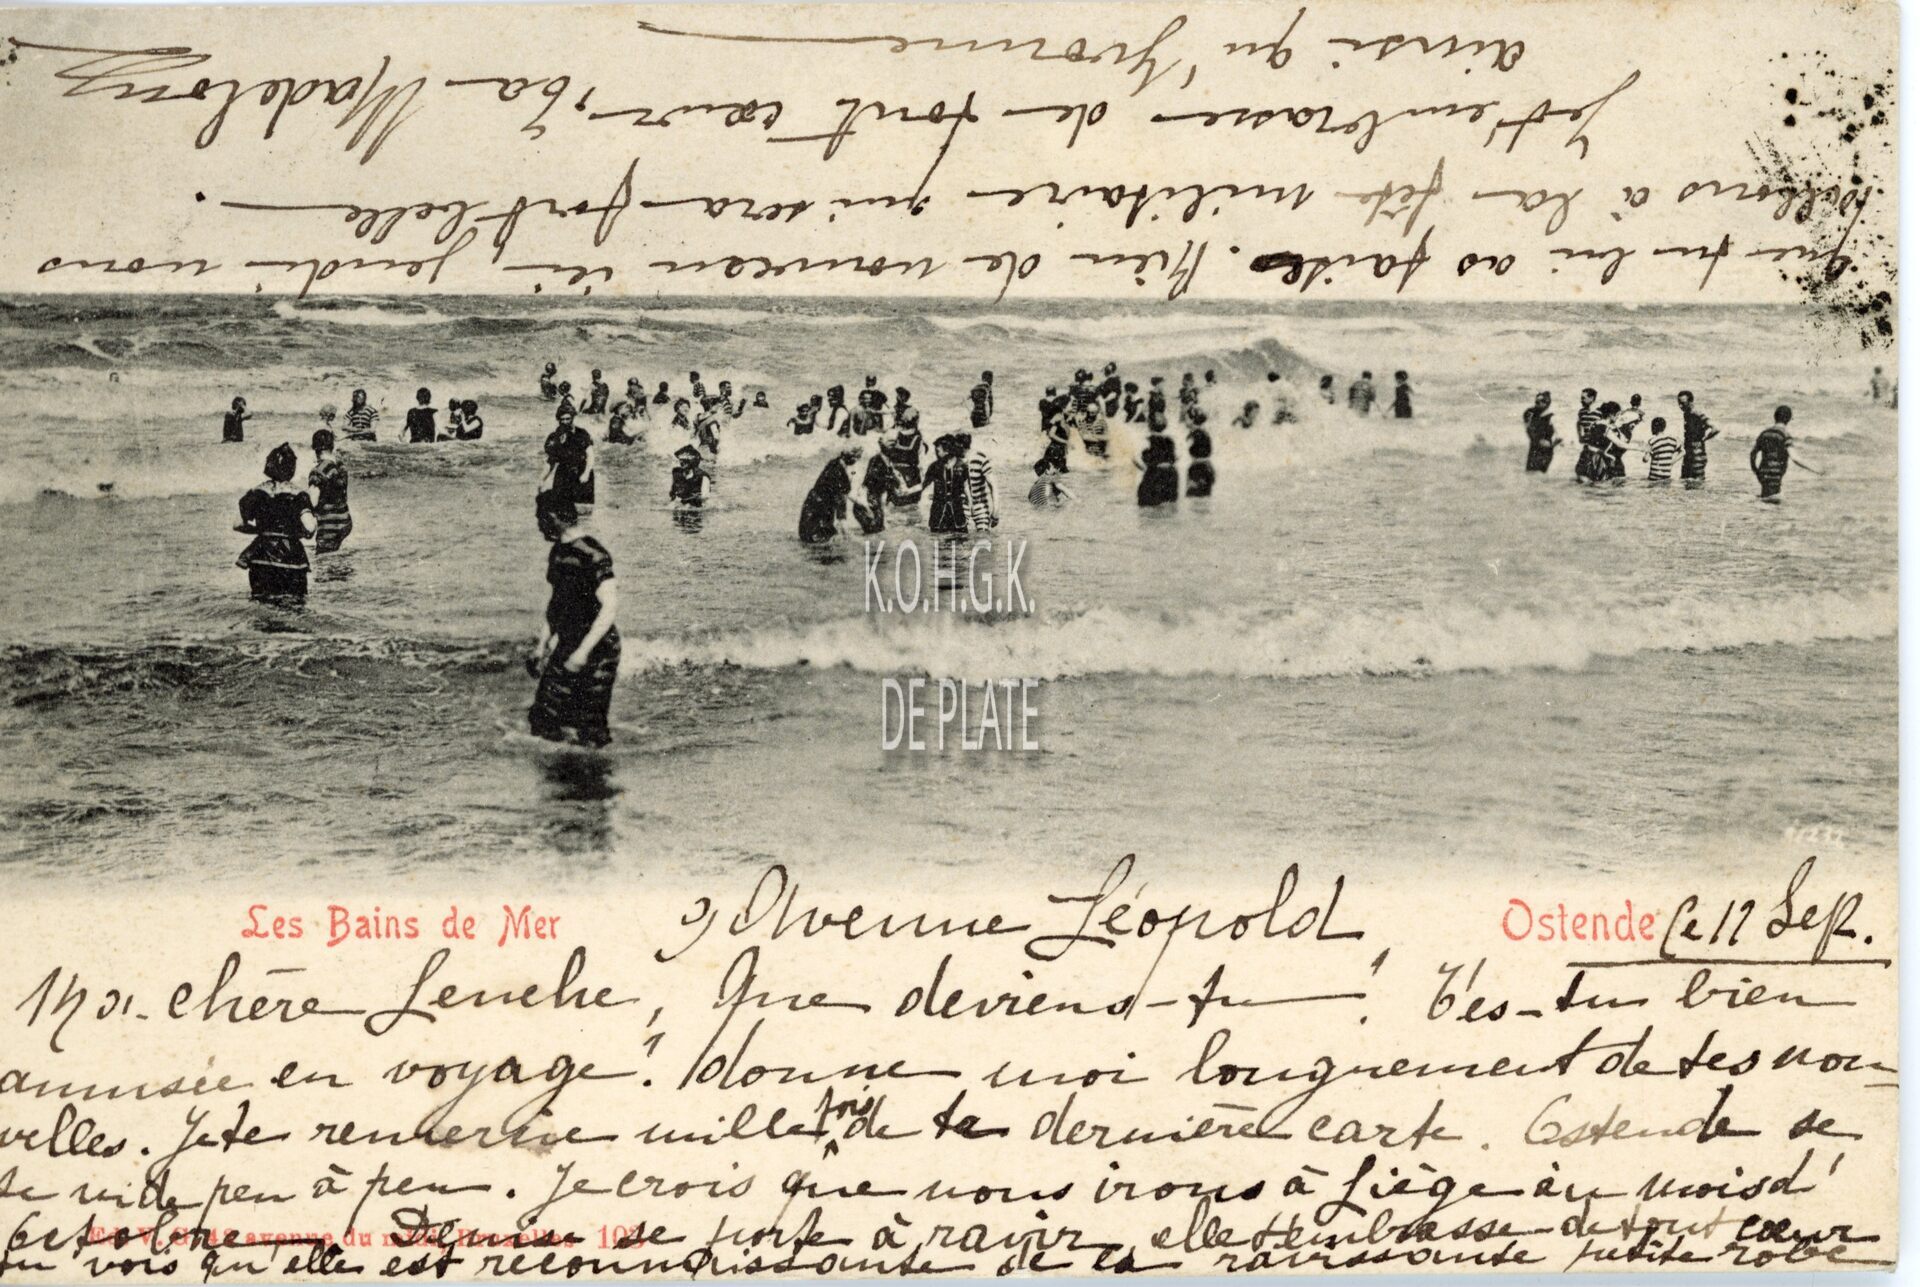 Les Bains de Mer
9 Avenue Léopold
Ostende le 12 Sept.
Ma chère Lenche, Que deviens-tu? T'es-tu bien
amusée en voyage? donne moi longuement de tes nou-
velles. Je te remercie mille fois de ta dernière carte. Ostende se
vide peu à peu. Je crois que nous irons à Liège au mois d'
Octobre Denise se porte à ravir elle t'embrasse de tout cœur
tu vois qu'elle est reconnaissante de la ravissante petite robe
Ed. V. G. 48 avenue du midi, Bruxelles 103
que tu lui as faite. Rien de nouveau ici, jeudi nous
allons à la fête militaire qui sera fort belle.
Je t'embrasse de tout cœur, ta Madelon
ainsi qu'Yvonne
K.O.H.G.K.
DE PLATE